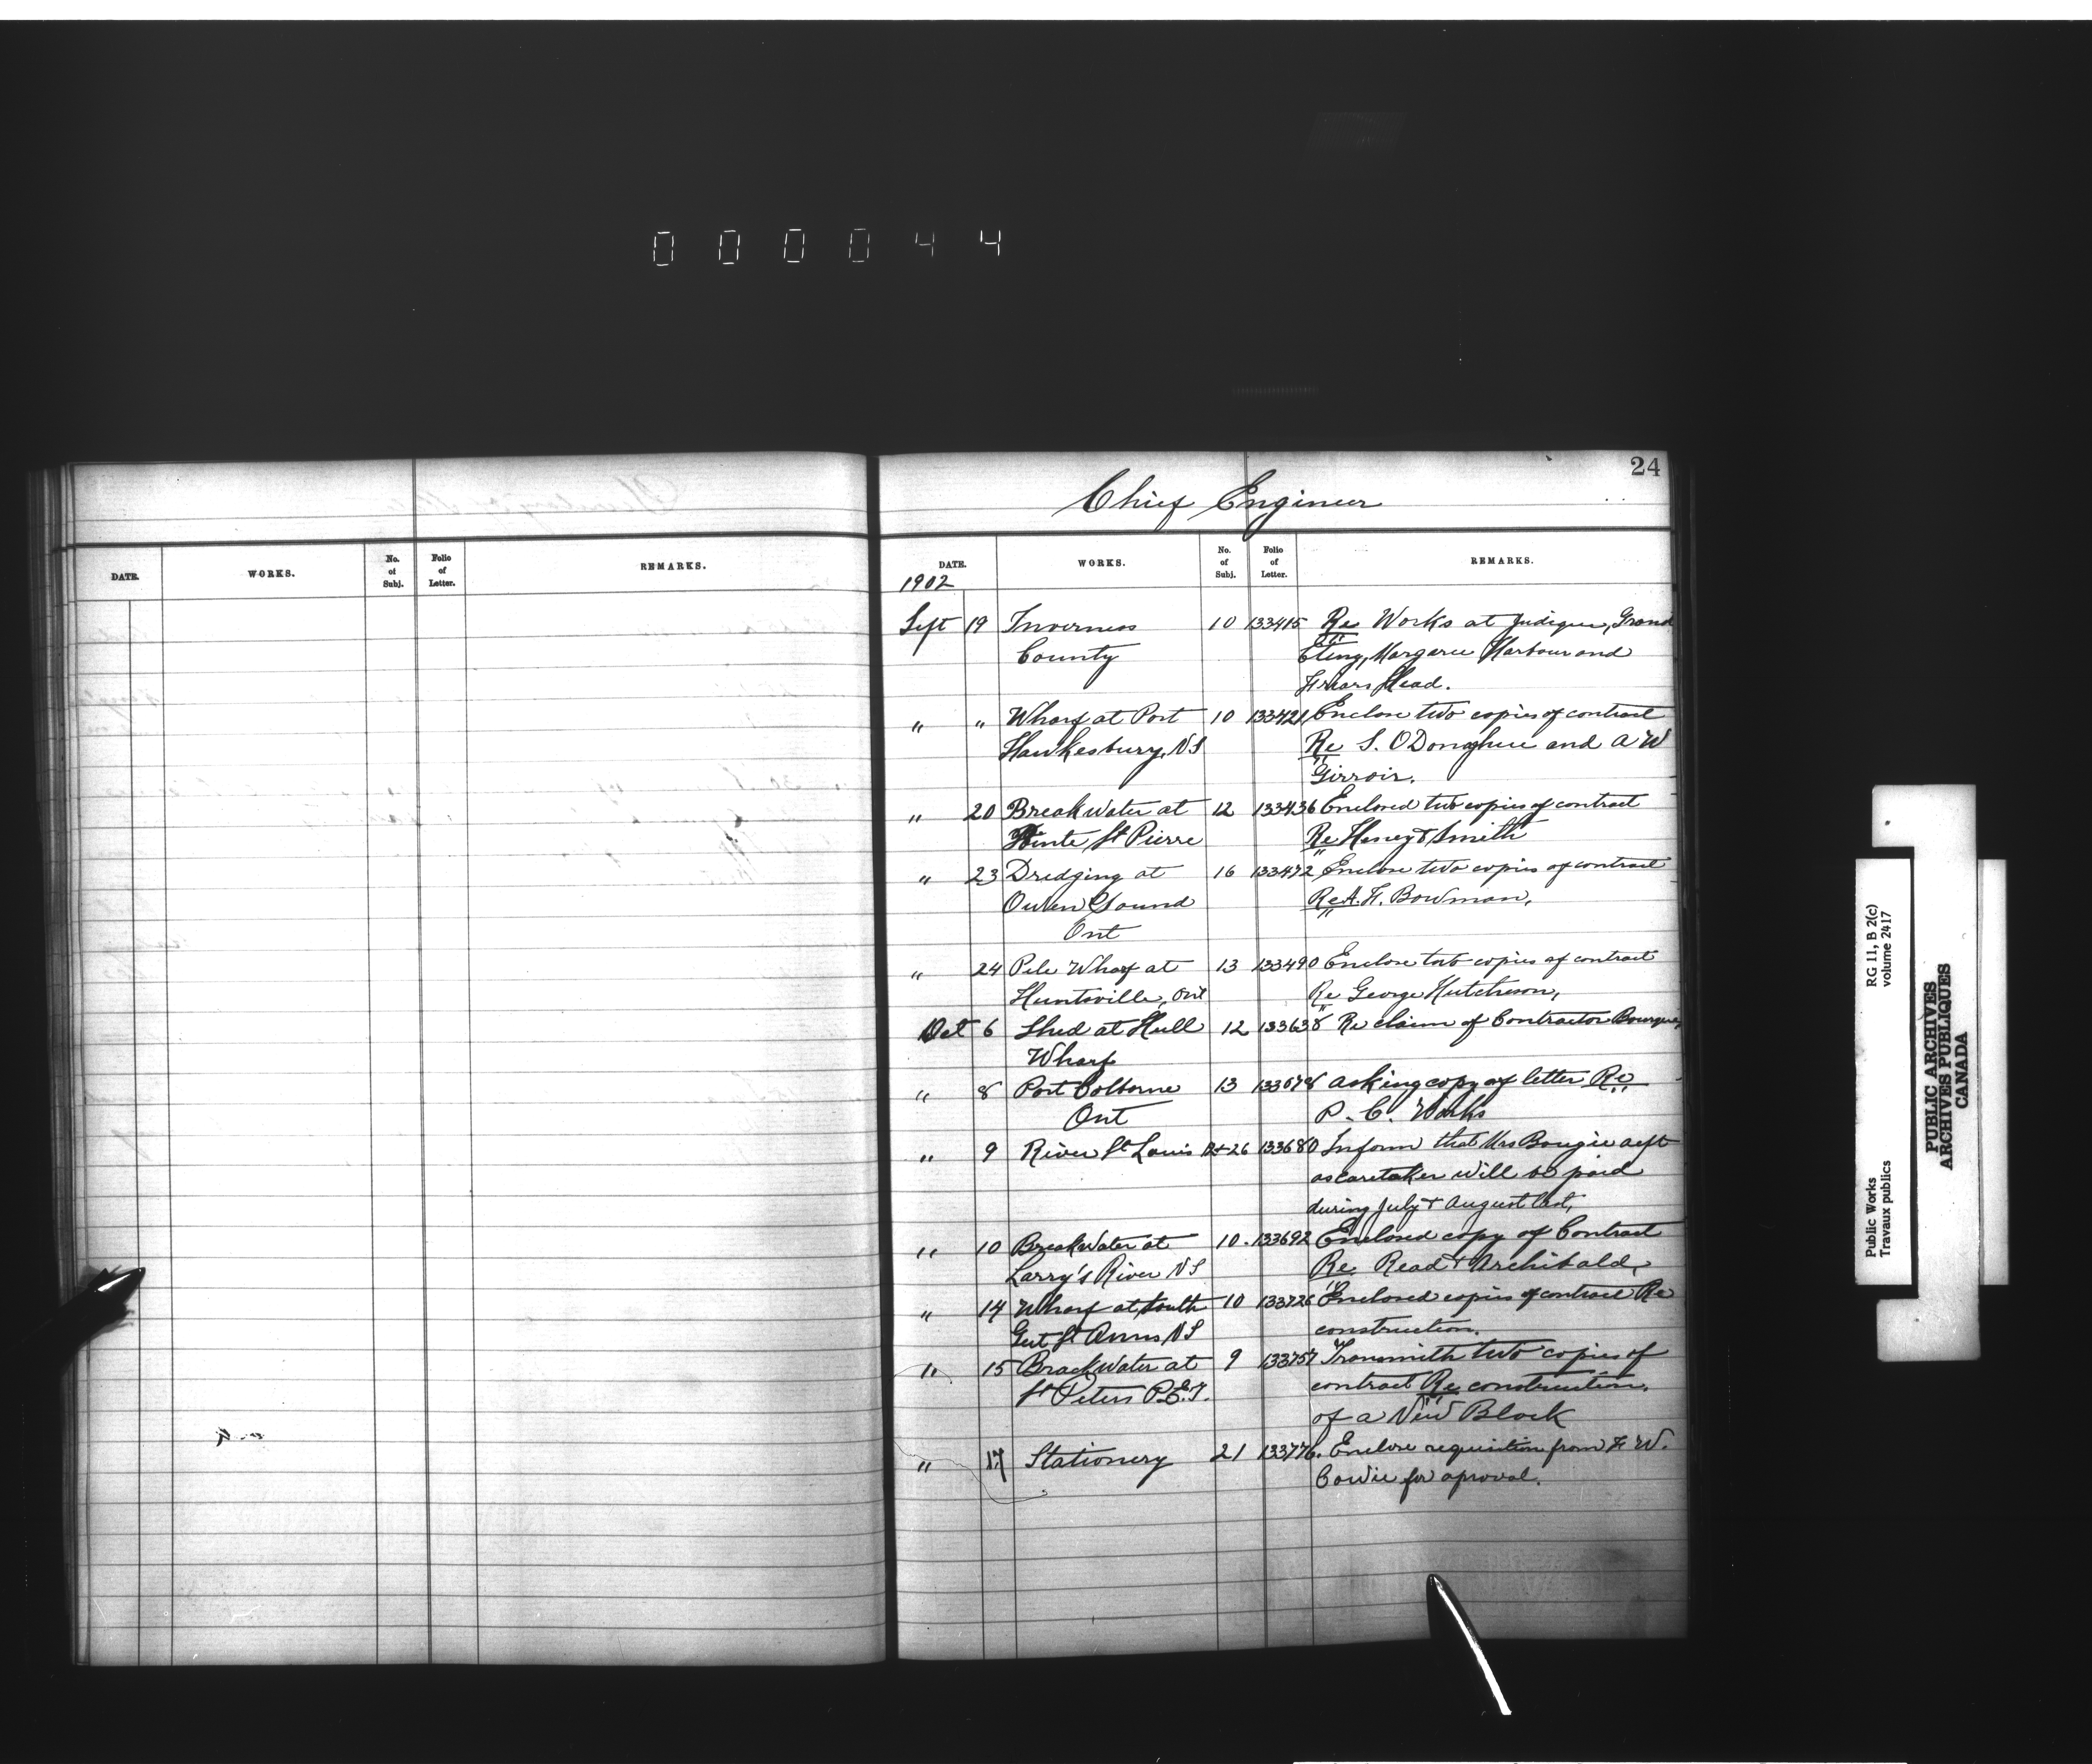 000044
24
Chief Engineer
DATE. WORKS. No. of Subj. Folio of Letter. REMARKS.
DATE. WORKS. No. of Subj. Folio of Letter. REMARKS.
1902
Sept 19 Inverness 10 133415 Re Works at Judique, Grand
County Etang, Margaree Harbour and
Friars Head.
" " Wharf at Port 10 133421 Enclose two copies of contract
Hawkesbury, NS Re S. O Donaghue and A W
Girroir.
" 20 Break Water at 12 133436 Enclosed two copies of contract
Pointe St Pierre Re Heney & Smith
" 23 Dredging at 16 133472 Enclose two copies of contract
Owen Sound Re A. F. Bowman,
Ont
" 24 Pile Wharf at 13 133490 Enclose two copies of contract
Huntsville, Ont Re George Hutcheson,
Oct 6 Shed at Hull 12 133638 Re claim of Contractor Bourque,
Wharf
" 8 Port Colborne 13 133678 asking copy of letter Re
Ont P. C. Works
" 9 River St Louis 12+26 133680 Inform that Mrs Bougie
as caretaker will be paid
during July & August last,
" 10 BreakWater at 10. 133692 Enclosed copy of Contract
Larry's River NS Re Read & Archibald,
" 14 Wharf at South 10 133726 Enclosed copies of contract Re
Gut St Anns NS construction.
" 15 BrackWater at 9 133757 Transmith two copies of
St Peters P.E.I. contract Re construction.
of a New Block
" 17 Stationery 21 133776. Enclose requisition from F W.
Cowie for aproval.
RG 11, B 2(c)
volume 2417
Public Works
Travaux publics
PUBLIC ARCHIVES
ARCHIVES PUBLIQUES
CANADA